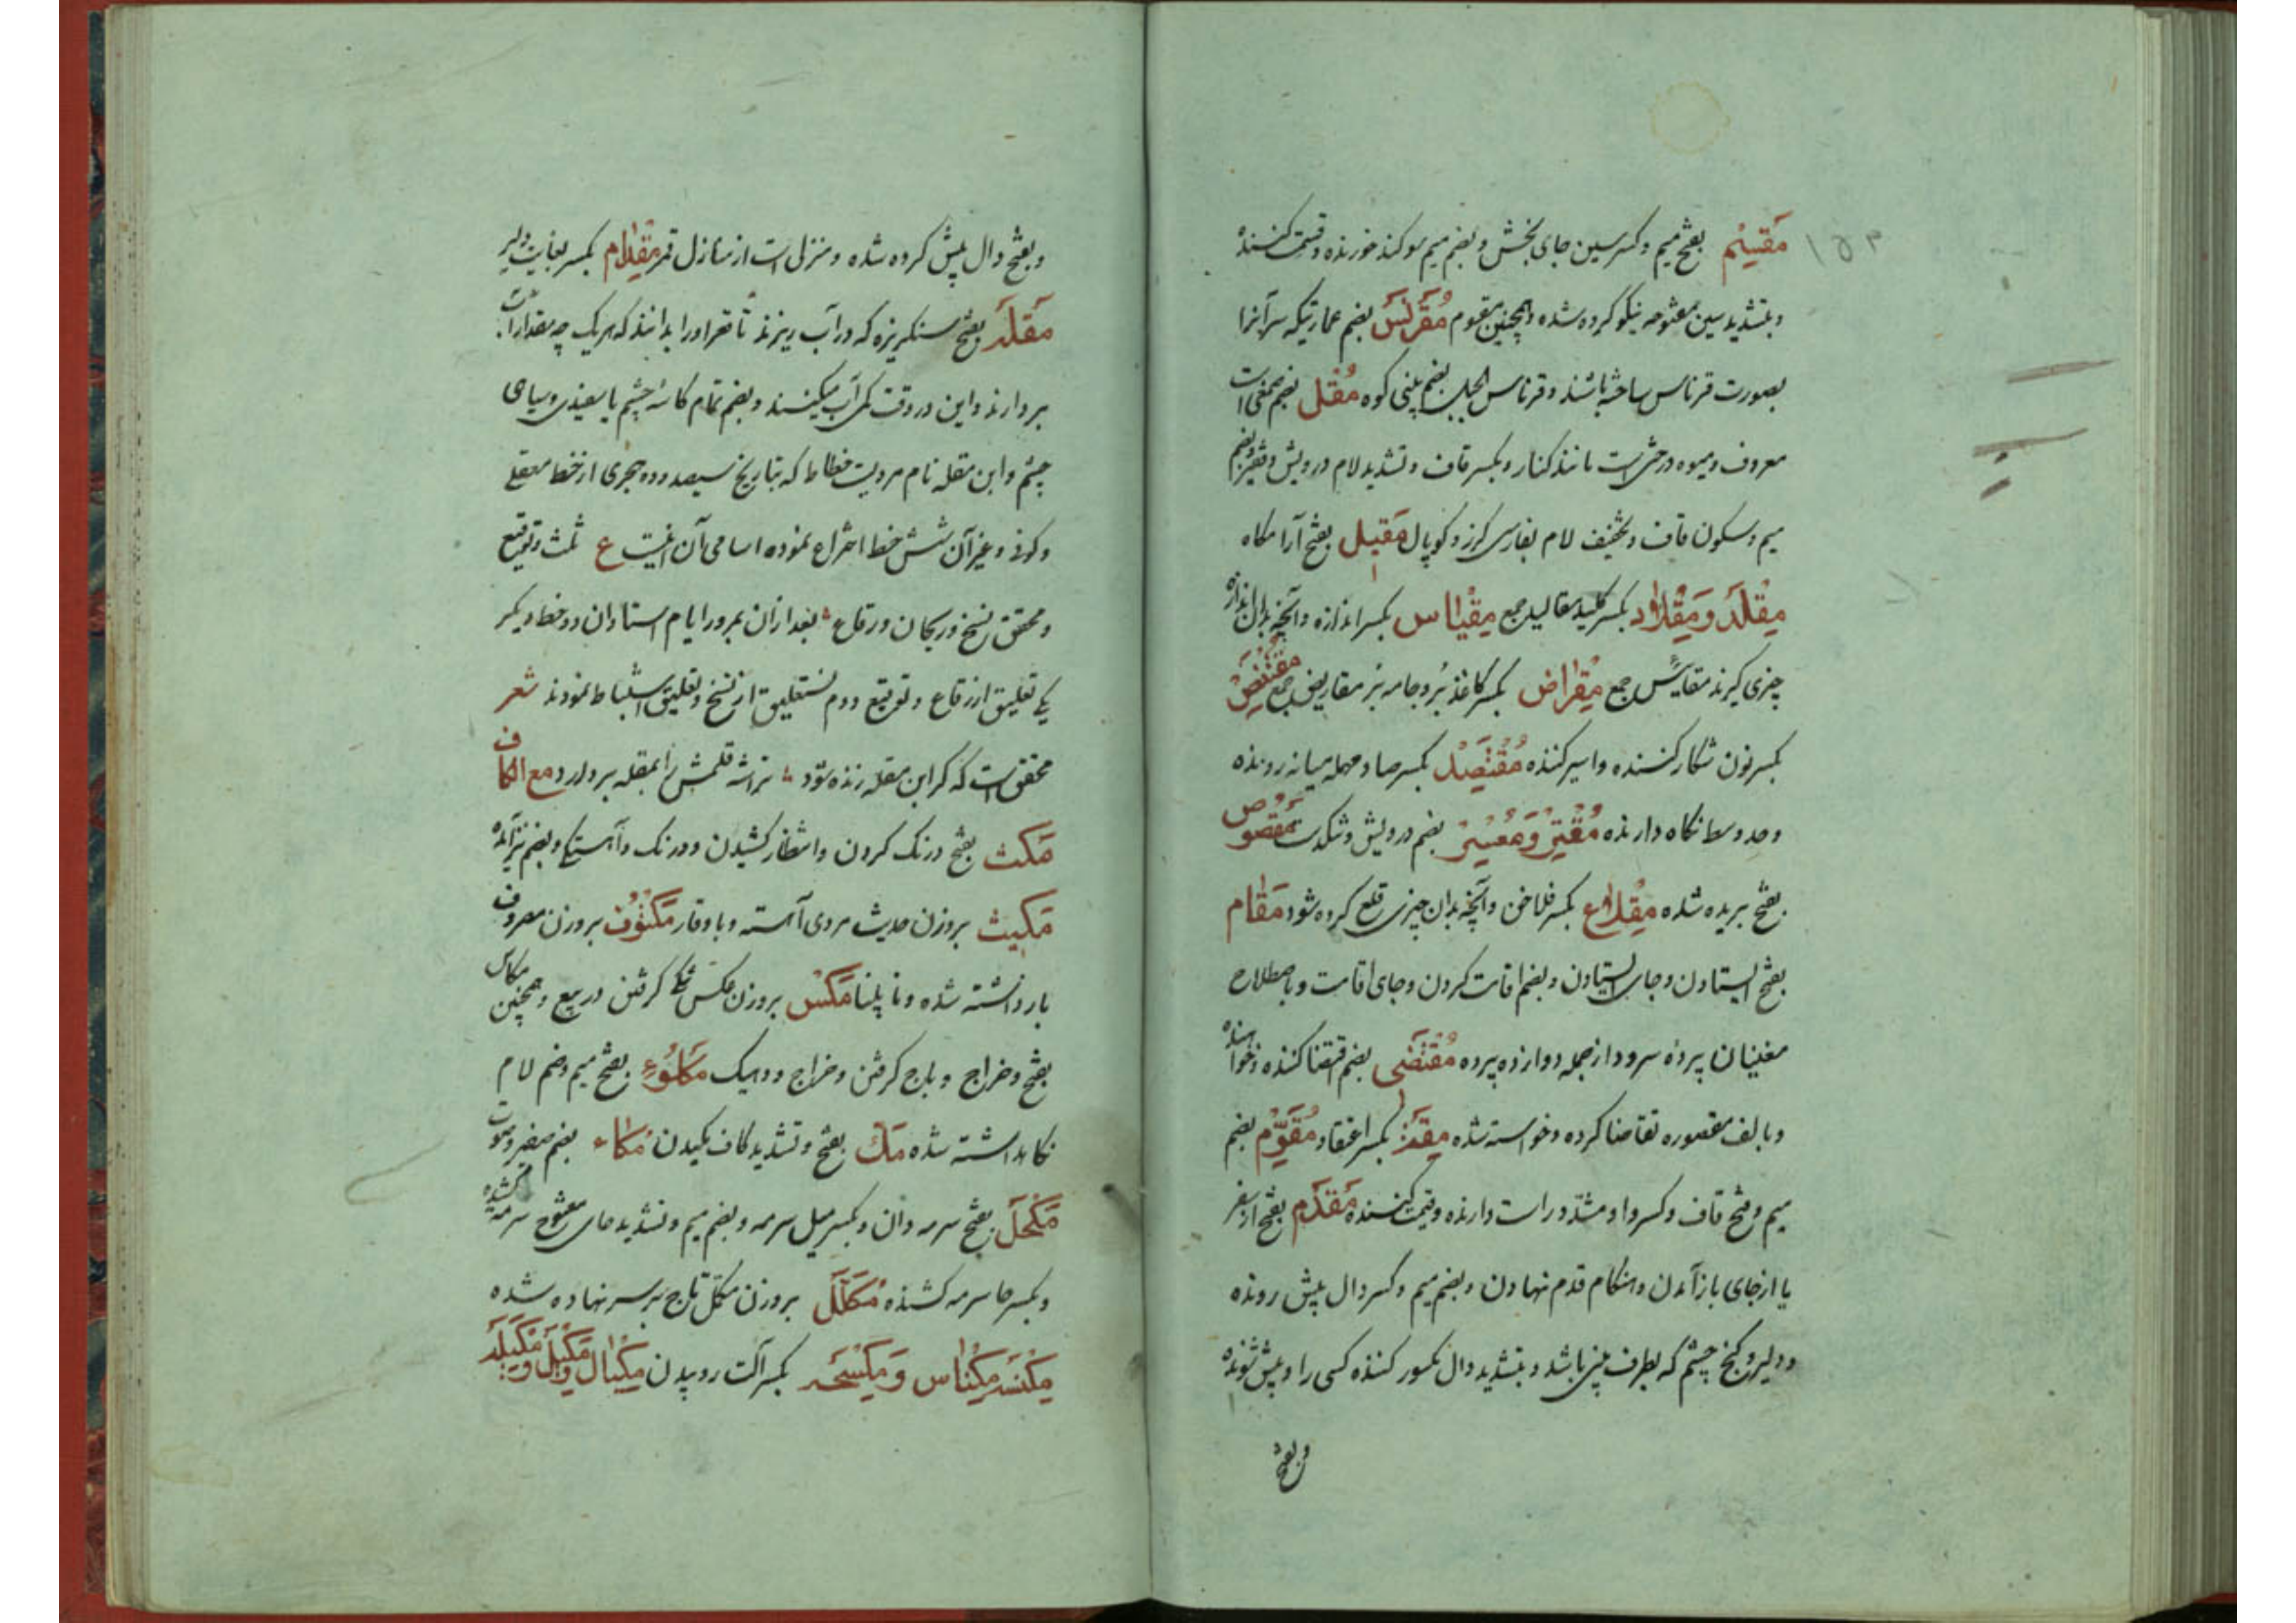 مَقسِم بفتح میم و کسر سین جای بخش و بضم میم سوکند خورنده و قسمت کننده
و بتشدید سین مفتوحه نیکو کرده شده و همچنین مقوم مُقَرنَس بضم عمارتیکه سر آنرا
بصورت قرناس ساخته باشند و قرناس الجبل بضم بینی کوه مُقل بضم صمغی است
معروف و میوه درختی است مانند کنار و بکسر قاف و تشدید لام درویش و فقیر و بضم
میم و سکون قاف و تخفیف لام بفارسی کرز و کوپال مَقیل بفتح آرامکاه
مِقلَد و مِقلاد بکسر کلید مقالید جمع مِقیاس بکسر اندازه و آنچه بدان اندازه
چیزی کیرند مقاییس جمع مِقراض بکسر کاغذ بُر و جامه بر مقاریض جمع مُقتَنِص
بکسر نون شکار کننده و اسیر کننده مُقتَصِد بکسر صاد مهمله میانه رونده
و حد وسط نکاه دارنده مُقتِر و مُعسِر بضم درویش و تنکدست مَقصوص
بفتح بریده شده مِقلاع بکسر فلاخن و آنچه بدان چیزی قلع کرده شود مَقام
بفتح ایستادن و جای ایستادن و بضم اقامت کردن و جای اقامت و باصطلاح
مغنیان پرده سرود از جمله دوازده پرده مُقتَضی بضم اقتضا کننده و خواهنده
و بالف مقصوره تقاضا کرده و خواسته شده بکسر مُقَوِّم بضم
میم و فتح قاف و کسر واو مشدّد راست دارنده و قیمت کننده مَقدَم بفتح از سفر
یا از جای باز آمدن و هنکام قدم نهادن و بضم میم و کسر دال پیش رونده
و دلیر و کنج چشم که بطرف بینی باشد و بتشدید دال مکسور کننده کسی را و پیش شونده
و بفتح
و بفتح دال پیش کرده شده و منزلی است از منازل قمر مِقدام بکسر بغایت دلیر
مَقلَه بفتح سنکریزه که در آب ریزند تا قعر او را بدانند که هر یک چه مقدار آب
بردارند و این در وقت کمی آب میکنند و بضم تمام کاسه چشم با سفیدی و سیاهی
چشم و ابن مقله نام مردیست خطاط که بتاریخ سیصد و ده هجری از خط معقلی
و کوفی و غیر آن شش خط اختراع نموده اسامی آن اینست ع ثلث و توقیع
و محقق و نسخ و ریحان و رقاع بعد ازان بمرور ایام استادان دو خط دیکر
یکی تعلیق از رقاع و توقیع و دوم نستعلیق از نسخ و تعلیق استنباط نمودند شعر
محقق است که کر ابن مقله زنده شود تراشه قلمش را بمقله بردارد مع الکاف
مَکث بفتح درنک کردن و انتظار کشیدن و درنک و آهستکی و بضم نیز آمده
مَکیث بروزن حدیث مردی آهسته و باوقار مَکفُوف بروزن معروف
باز داشته شده و نابینا مَکس بروزن عکس کرفتن در بیع و همچنین مکاس
بفتح و خراج و باج کرفتن و خراج و ده یک مَکلُوء بفتح میم و ضم لام
نکاهداشته شده مَکّ بفتح و تشدید کاف مکیدن مُکاء بضم صفیر و صوت
مَکحَل بفتح سرمه دان و بکسر میل سرمه و بضم میم و تشدید حای مفتوح سرمه کشیده
و بکسر حا سرمه کشنده مُکَلَّل بروزن مکمّل تاج بر سر نهاده شده
مِکنَسه مِکناس وَ مِکسَحه بکسر آلت روبیدن مِکیال و مِکیَل و مِکیَله